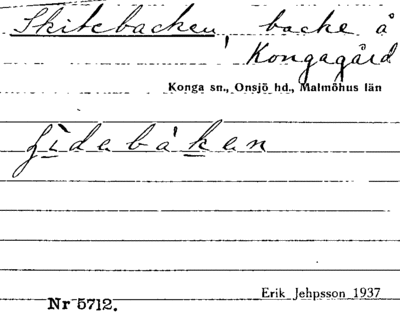 Skitebacken, backe å
Kongagård
Konga sn., Onsjö hd., Malmöhus län
Erik Jehpsson 1937
Nr 5712.